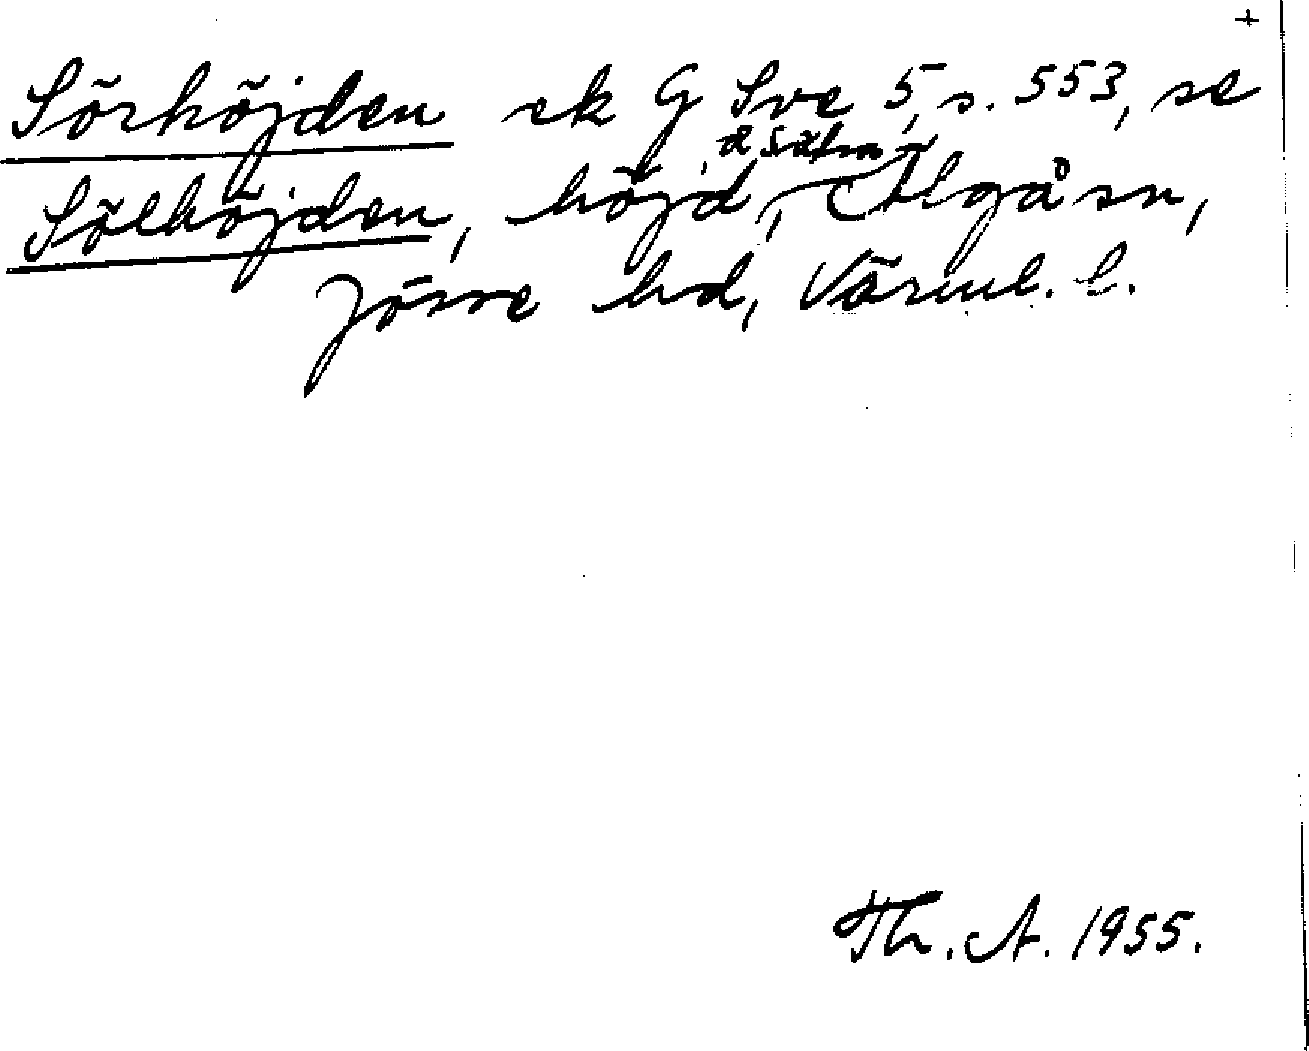 +
Sörhöjden ek G Sve 5, s. 553, se
Sölhöjden, höjd, Älgå sn,
Jösse hd, Värml. l.
Th. A. 1955.